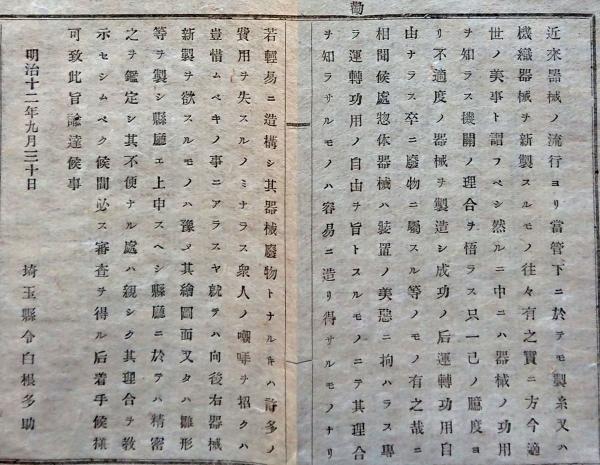 勸
近來器械ノ流行ヨリ當管下ニ於テモ製糸又ハ
機織器械ヲ新製スルモノ往々有之實ニ方今適
世ノ美事ト謂フベシ然ルニ中ニハ器械ノ功用
ヲ知ラス機關ノ理合ヲ悟ラス只一己ノ臆度ヨ
リ不適度ノ器械ヲ製造シ成功ノ后運轉功用自
由ナラス卒ニ廢物ニ屬スル等ノモノ有之哉ニ
相聞候處惣体器械ハ裝置ノ美惡ニ拘ハラス專
ラ運轉功用ノ自由ヲ旨トスルモノニテ其理合
ヲ知ラサルモノハ容易ニ造リ得サルモノナリ
若輕易ニ造構シ其器械廢物トナルキハ許多ノ
費用ヲ失スルノミナラス衆人ノ嘲哢ヲ招クハ
豈惜ムベキノ事ニアラスヤ就テハ向後右器械
新製ヲ欲スルモノハ豫メ其繪圖面又タハ雛形
等ヲ製シ縣廳エ上申スヘシ縣廳ニ於テハ精密
之ヲ鑑定シ其不便ナル處ハ親シク其理合ヲ敎
示セシムベク候間必ス審査ヲ得ル后着手候樣
可致此旨諭達候事
明治十二年九月三十日
埼玉縣令白根多助